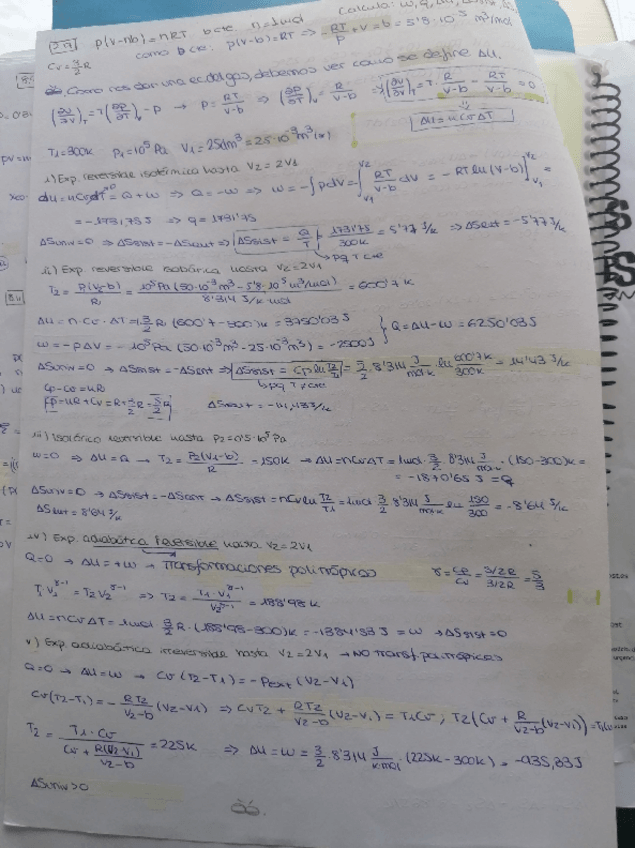 2.9 P(V-nb)=nRT b cte. n=1mol Calcula: w, q, ΔU,
Cv=3/2R como b cte. p(V-b)=RT ⇒ -RT/P+V=b=5'8·10⁻⁵ m³/mol
Como nos dan una ec del gas, debemos ver como se define ΔU.
(∂U/∂V)T=T(∂P/∂T)V-P → P=RT/(V-b) ⇒ (∂P/∂T)V=R/(V-b) ⇒ (∂U/∂V)T=T·R/(V-b) - RT/(V-b)=0
ΔU=nCvΔT
T1=300K P1=10⁵Pa V1=25dm³=25·10⁻³m³(*)
i) Exp. reversible isotérmica hasta V2=2V1
dU=nCvdT=Q+W ⇒ Q=-W ⇒ W=-∫pdV=-∫V1 V2 RT/(V-b) dV=-RTln(V-b)]V1 V2=
=-1731,75J ⇒ q=1731'75
ΔSuniv=0 ⇒ ΔSsist=-ΔSent ⇒ ΔSsist=Q/T = 1731'75/300K=5'77 J/K ⇒ ΔSent=-5'77 J/K
↳pq T cte
ii) Exp. reversible isobárica hasta V2=2V1
T2=P(V2-b)/R=10⁵Pa(50·10⁻³m³-5'8·10⁻⁵m³/mol)/8'314 J/K·mol=600'7K
ΔU=n·Cv·ΔT=1·3/2R(600'7-300)K=3750'03J
W=-PΔV=-10⁵Pa(50·10⁻³m³-25·10⁻³m³)=-2500J } Q=ΔU-W=6250'03J
ΔSuniv=0 ⇒ ΔSsist=-ΔSent ⇒ ΔSsist=Cpln T2/T1=5/2·8'314 J/mol·K·ln 600'7K/300K=14'43 J/K
↳pq T≠cte
Cp-Cv=nR
Cp=nR+Cv=R+3/2R=5/2R ΔSent=-14,43J/K
iii) Isotórico reversible hasta P2=0'5·10⁵Pa
W=0 ⇒ ΔU=Q → T2=P2(V1-b)/R=150K ⇒ ΔU=nCvΔT=1mol·3/2·8'314 J/mol·K·(150-300)K=
=-1870'65J=Q
ΔSuniv=0 → ΔSsist=-ΔSent → ΔSsist=nCvln T2/T1=1mol·3/2·8'314 J/mol·K ln 150/300=-8'64 J/K
ΔSent=8'64 J/K
iv) Exp. adiabática reversible hasta V2=2V1
Q=0 → ΔU=+W → Transformaciones politrópicas γ=Cp/Cv=3/2R/3/2R=5/3
T1V1^γ-1=T2V2^γ-1 ⇒ T2=T1·V1^γ-1/V2^γ-1=188'98K
ΔU=nCvΔT=1mol·3/2R·(188'98-300)K=-1384'33J=W → ΔSsist=0
v) Exp. adiabática irreversible hasta V2=2V1 → NO transf. politrópicas
Q=0 → ΔU=W → Cv(T2-T1)=-Pext(V2-V1)
Cv(T2-T1)=-RT2/(V2-b)(V2-V1) ⇒ CvT2+RT2/(V2-b)(V2-V1)=T1Cv; T2(Cv+R/(V2-b)(V2-V1))=T1Cv
T2=T1·Cv/(Cv+R(V2-V1)/(V2-b))=225K ⇒ ΔU=W=3/2·8'314 J/K·mol·(225K-300K)=-935,33J
ΔSuniv>0